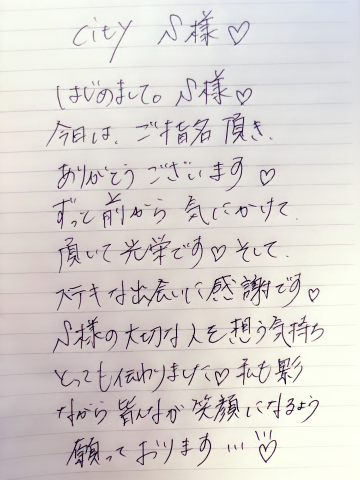 city S様♡
はじめまして。S様♡
今日は、ご指名頂き、
ありがとうございます♡
ずっと前から気にかけて
頂いて光栄です♡そして、
ステキな出会いに感謝です♡
S様の大切な人を想う気持ち
とっても伝わりました♡私も影
ながら皆んなが笑顔になるよう
願っております…♡